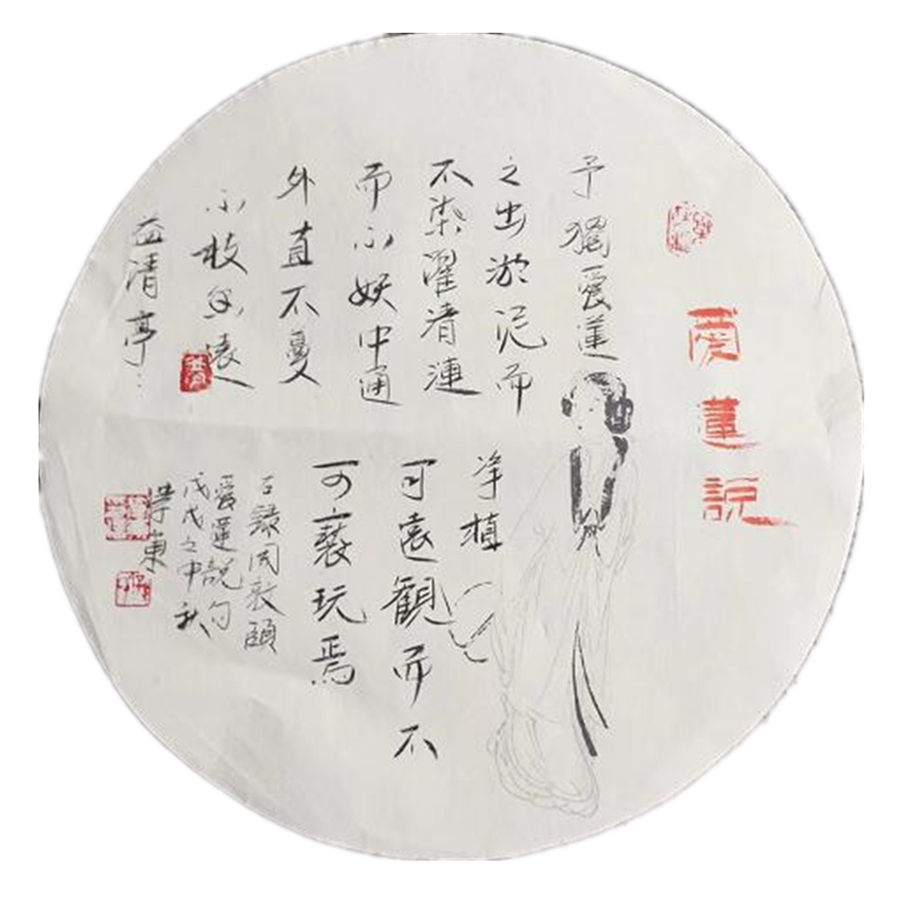 愛蓮説
予獨愛蓮
之出淤泥而
不染濯清漣
而不妖中通
外直不蔓
不枝香遠
益清亭:
净植
可遠觀而不
可褻玩焉
右録周敦頤
愛蓮説句
戊戌之中秋